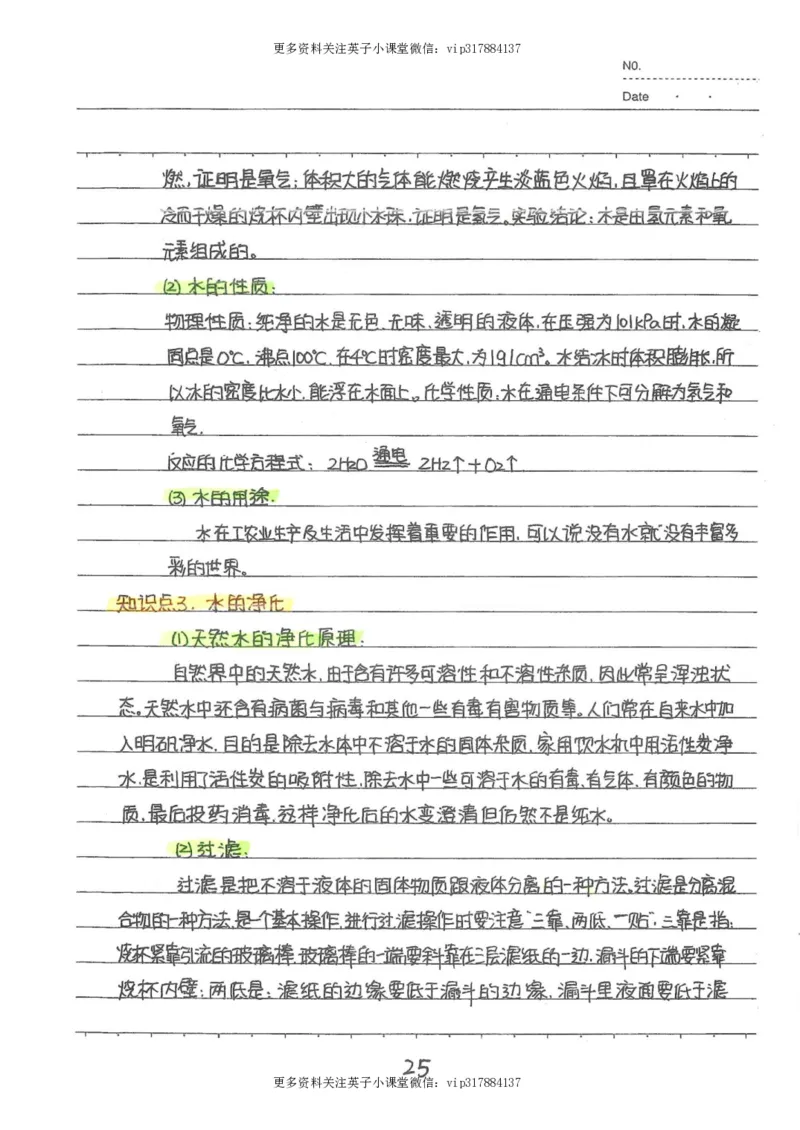 更多资料关注英子小课堂微信：vip317884137
NO.
Date
燃，证明是氧气；体积大的气体能燃烧产生淡蓝色火焰，且罩在火焰上的
冷而干燥的烧杯内壁出现小水珠，证明是氢气。实验结论：水是由氢元素和氧
元素组成的。
(2) 水的性质：
物理性质：纯净的水是无色、无味、透明的液体，在压强为101kPa时，水的凝
固点是0℃，沸点100℃，在4℃时密度最大，为1g/cm³。水结冰时体积膨胀，所
以冰的密度比水小，能浮在水面上。化学性质：水在通电条件下可分解为氢气和
氧气.
反应的化学方程式： 2H2O 通电 2H2↑+O2↑
(3) 水的用途.
水在工农业生产及生活中发挥着重要的作用，可以说没有水就没有丰富多
彩的世界。
知识点3. 水的净化
(1)天然水的净化原理：
自然界中的天然水，由于含有许多可溶性和不溶性杂质，因此常呈浑浊状
态。天然水中还含有病菌与病毒和其他一些有毒有害物质等。人们常在自来水中加
入明矾净水，目的是除去水体中不溶于水的固体杂质，家用饮水机中用活性炭净
水，是利用了活性炭的吸附性，除去水中一些可溶于水的有毒、有气体、有颜色的物
质，最后投药消毒，这样净化后的水变澄清但仍然不是纯水。
(2)过滤：
过滤是把不溶于液体的固体物质跟液体分离的一种方法，过滤是分离混
合物的一种方法，是一个基本操作，进行过滤操作时要注意“三靠、两低、一贴”，三靠是指：
烧杯紧靠引流的玻璃棒，玻璃棒的一端要斜靠在三层滤纸的一边，漏斗的下端要紧靠
烧杯内壁；两低是：滤纸的边缘要低于漏斗的边缘，漏斗里液面要低于滤
25
更多资料关注英子小课堂微信：vip317884137